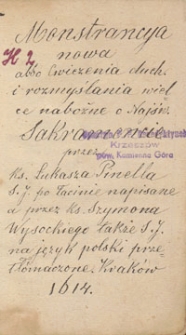 Monstrancyja
nowa
albo ćwiczenia duch.
i rozmyślania wiel
ce nabożne o Najśw.
Sakramencie
przez
Krzeszów
pow. Kamienna Góra
ks. Łukasza Pinella
S. J. po łacinie napisane
a przez ks. Szymona
Wysockiego także S. J.
na język polski prze-
tłomaczone. Kraków
1614.